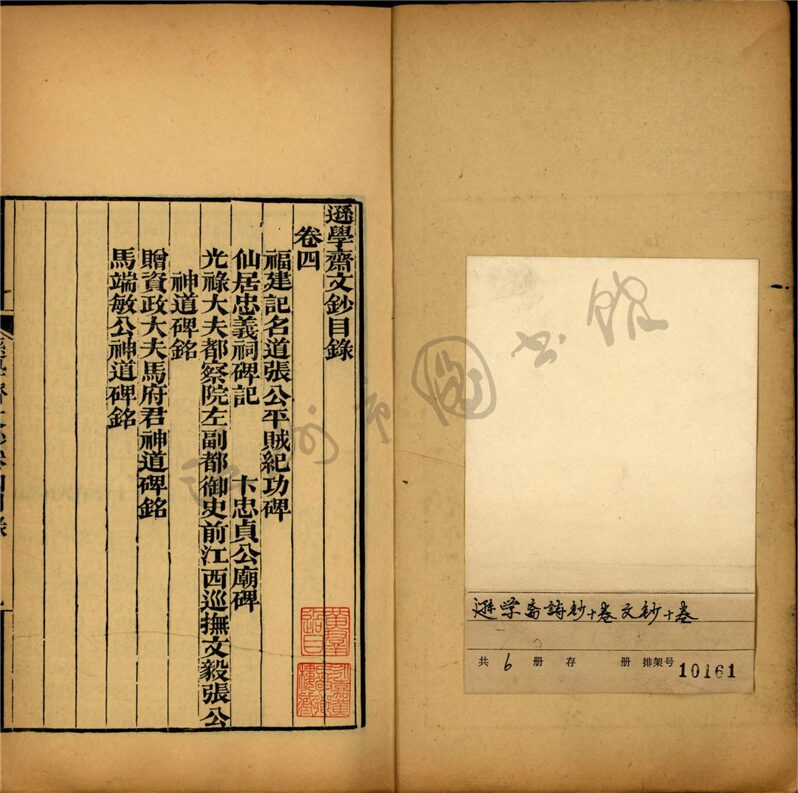 遜學齋文鈔目錄
卷四
福建記名道張公平賊紀功碑
仙居忠義祠碑記 卞忠貞公廟碑
光祿大夫都察院左副都御史前江西巡撫文毅張公
神道碑銘
贈資政大夫馬府君神道碑銘
馬端敏公神道碑銘
逊学斋詩鈔十卷文鈔十卷
共 6 册 存 册 排架号 10161
市圖书館